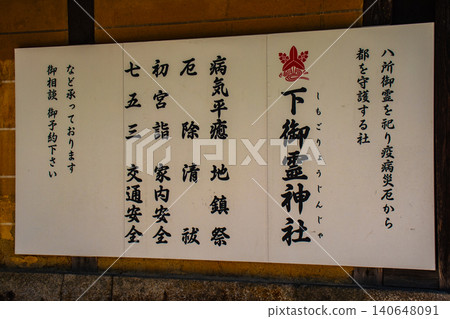 八所御霊を祀り疫病災厄から
都を守護する社
しもごりょうじんじゃ
下御霊神社
病気平癒 地鎮祭
厄除清祓
初宮詣 家内安全
七五三 交通安全
など承っております
御相談 御予約下さい
PIXTA
pixta.jp - 140648091